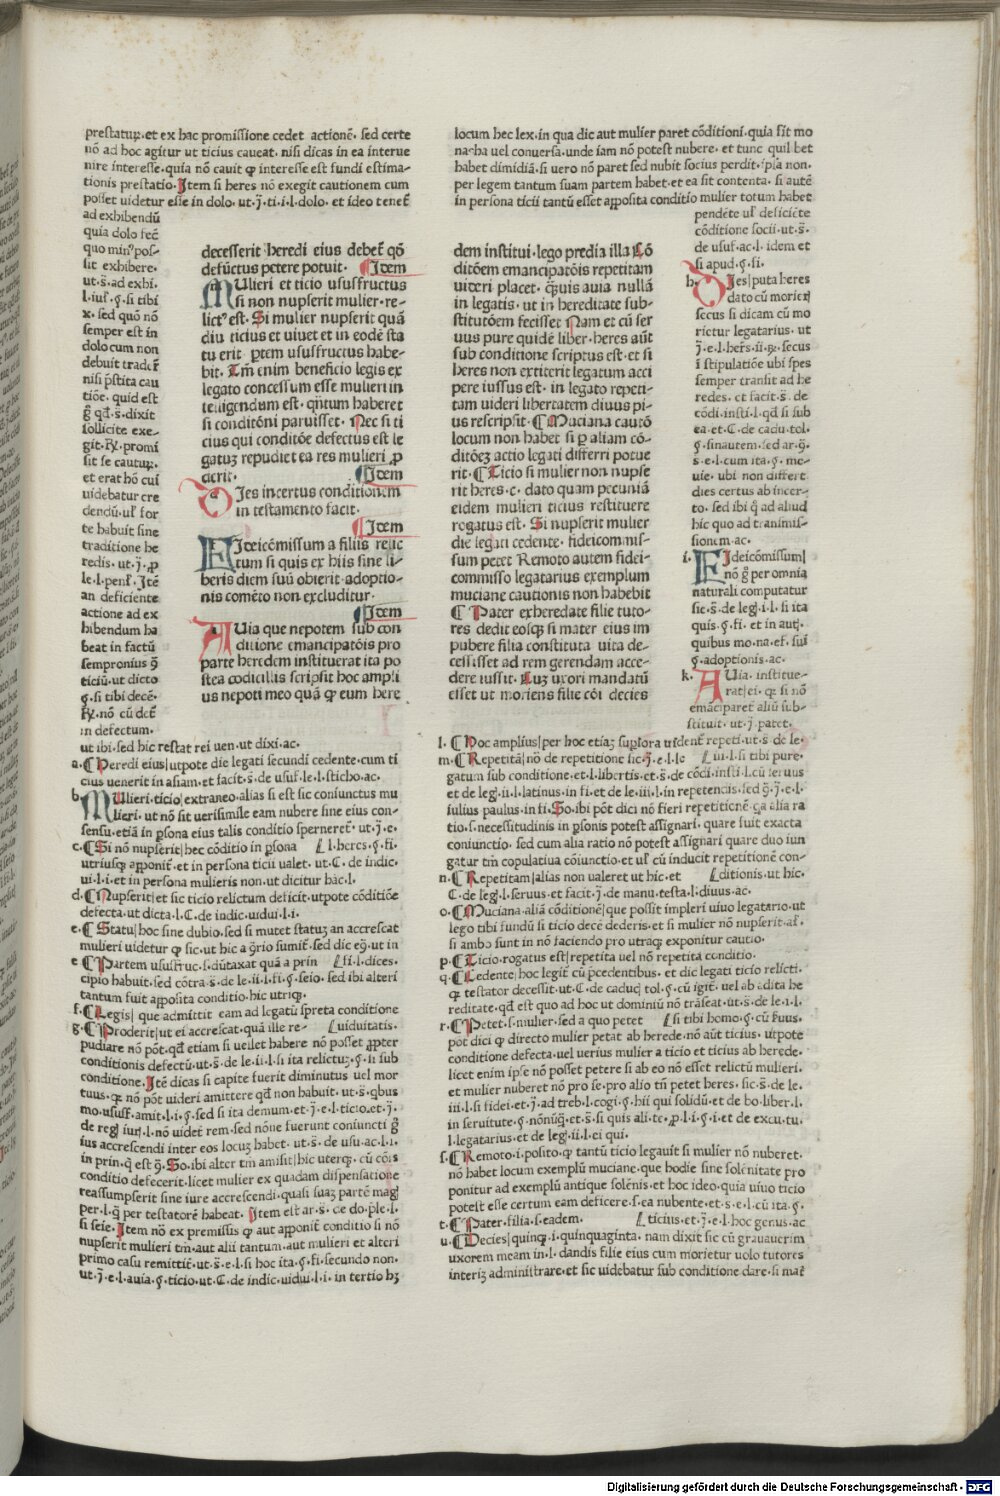 prestatur. et ex hac promissione cedet actionē. sed certe
nō ad hoc agitur ut ticius caueat. nisi dicas in ea interue
nire interesse. quia nō cauit ꝙ interesse est fundi estima-
tionis prestatio. Item si heres nō exegit cautionem cum
posset uidetur esse in dolo. ut.j.ti.i.l.dolo. et ideo tenet̄
ad exhibendū
quia dolo fec̄
quo minꝰ pos-
sit exhibere.
ut.s̄.ad exhi.
l.iul.ꝭ.si tibi
x. sed quo nō
semper est in
dolo cum non
debuit trader̄
nisi p̄stita cau
tiōe. quid est
g̊ qd̄.s̄.dixit
sollicite exe-
git. promi
sit se cautur.
et erat hō cui
uidebatur cre
dendū. ul' for
te habuit sine
traditione he
redis. ut.j.ꝓ
le.l.penl'. Itē
an deficiente
actione ad ex
hibendum ha
beat in factū
sempronius 9̄
ticiū. ut dicto
ꝭ.si tibi decē.
nō cū det̄
in defectum.
decesserit heredi eius debet̄ qō
defūctus petere potuit. ¶Item
MUlieri et ticio ususfructus
si non nupserit mulier re-
lictꝰ est. Si mulier nupserit quā
diu ticius et uiuet et in eodē sta
tu erit ꝑtem ususfructus habe-
bit. Tm̄ enim beneficio legis ex
legato concessum esse mulieri in
telligendum est. qn̄tum haberet
si conditōni paruisset. Nec si ti
cius qui conditōe defectus est le
gatuꝫ repudiet ea res mulieri ꝓ
derit. ¶Item
DIes incertus conditionem
in testamento facit.
¶Item
FIdeicōmissum a filiis relic
tum si quis ex hiis sine li-
beris diem suū obierit adoptio-
nis comēto non excluditur.
¶Item
AUia que nepotem sub con
ditione emancipatōis pro
parte heredem instituerat ita po
stea codicillis scripsit hoc ampli
us nepoti meo quā ꝙ eum here
ut ibi.sed hic restat rei uen.ut dixi.ac.
a.¶Heredi eius|utpote die legati secundi cedente.cum ti
cius uenerit in asiam.et facit.s̄.de usuf.le.l.sticho.ac.
b. MUlieri.ticio|extraneo.alias si est sic coniunctus mu
lieri. ut nō sit uerisimile eam nubere sine eius con-
sensu.etiā in ꝑsona eius talis conditio sperneret̄.ut.j.e.
c.¶Si nō nupserit|hec cōditio in ꝑsona [l.heres.ꝭ.fi.
utriusqꝫ apponit̄.et in persona ticii ualet.ut.C.de indic.
ui.l.i.et in persona mulieris non.ut dicitur hac.l.
d.¶Nupserit|et sic ticio relictum deficit.utpote cōditiōe
defecta.ut dicta.l.C.de indic.uidui.l.i.
e.¶Statu|hoc sine dubio.sed si mutet statuꝫ an accrescat
mulieri uidetur ꝙ sic.ut hic a 9̄rio sumit̄.sed dic eꝫ.ut in
e ¶Partem ususfruc.s.dūtaxat quā a prin [fi.l.dices.
cipio habuit.sed cōtra.s̄.de le.ii.l.fi.ꝭ.seio.sed ibi alteri
tantum fuit apposita conditio.hic utriqꝫ.
f.¶Legis|que admittit eam ad legatū spreta conditione
g.¶Proderit|ut ei accrescat.quā ille re- [uiduitatis.
pudiare nō pōt.qd̄ etiam si uellet habere nō posset ꝓpter
conditionis defectū.ut.s̄.de le.ii.l.si ita relictuꝫ.ꝭ.ii sub
conditione.Itē dicas si capite fuerit diminutus uel mor
tuus.qꝛ nō pōt uideri amittere qd̄ non habuit.ut.s̄.qbus
mo.ususf.amit.l.i.ꝭ.sed si ita demum.et.j.e.l.ticio.et.j.
de regl' iur̄.l.nō uidet̄ rem.sed nōne fuerunt coniuncti g̊
ius accrescendi inter eos locuꝫ habet.ut.s̄.de usu.ac.l.i.
in prin.q̄ est 9̄.So.ibi alter tm̄ amisit|hic uterqꝫ.cū cōis
conditio defecerit.licet mulier ex quadam dispensatione
reassumpserit sine iure accrescendi.quasi suaꝫ parte mag
per.l.q̄ per testatorē habeat. Item est ar.s̄.ce do.ple.l.
si seie.Item nō ex premissis ꝙ aut apponit̄ conditio si nō
nupserit mulieri tm̄.aut alii tantum.aut mulieri et alteri
primo casu remittit̄.ut.s̄.e.l.si hoc ita.ꝭ.fi.secundo non.
ut.j.e.l.auia.ꝭ.ticio.ut.C.de indic.uidui.l.i.in tertio hꝫ
locum hec lex.in qua dic aut mulier paret cōditioni.quia fit mo
nacha uel conuersa.unde iam nō potest nubere.et tunc quil bet
habet dimidiā.si uero nō paret sed nubit socius perdit.ipsa non.
per legem tantum suam partem habet.et ea sit contenta.si autē
in persona ticii tantū esset apposita conditio mulier totum habet
pendēte ul' deficiēte
cōditione socii.ut.s̄.
de usuf.ac.l.idem et
si apud.ꝭ.fi.
dem institui.lego predia illa Cō
ditōem emancipatōis repetitam
uideri placet. q̄uis auia nullā
in legatis. ut in hereditate sub-
stitutōem fecisset Nam et cū ser
uus pure quidē liber.heres aūt
sub conditione scriptus est.et si
heres non extiterit legatum acci
pere iussus est.in legato repeti-
tam uideri libertatem diuus pi-
us rescripsit.¶Muciana cautō
locum non habet si ꝑ aliam cō-
ditōeꝫ actio legati differri potue
rit.¶Ticio si mulier non nupse
rit heres.c.dato quam pecuniā
eidem mulieri ticius restituere
rogatus est. Si nupserit mulier
die legati cedente.fideicommis-
sum petet Remoto autem fidei-
commisso legatarius exemplum
muciane cautionis non habebit
¶Pater exheredate filie tuto-
res dedit eosqꝫ si mater eius im
pubere filia constituta uita de-
cessisset ad rem gerendam acce-
dere iussit. Cuꝫ uxori mandatū
esset ut moriens filie cōi decies
h. DIes|puta heres
dato cū moriet̄|
secus si dicam cū mo
rietur legatarius. ut
j.e.l.her̄s.ii.qꝛ.secus
ī stipulatiōe ubi spes
semper transit ad he
redes. et facit.s̄. de
cōdi.insti.l.qd̄ si sub
ea.et.C.de cadu.tol.
ꝭ.sinautem.sed ar.9̄.
s̄.e.l.cum ita.ꝭ.me-
uie.ubi non differt
dies certus ab incer-
to.sed ibi q̄ ad aliud
hic quo ad transmis-
sionem.ac.
i. FIdeicōmissum|
nō g̊ per omnia
naturali computatur
sic.s̄.de leg.i.l.si ita
quis.ꝭ.fi.et in aut.
quibus mo.na.ef.sui
ꝭ.adoptionis.ac.
k. AUia.institue-
rat|ei.qꝛ si nō
emāciparet aliū sub-
stituit.ut.j.patet.
l.¶Hoc amplius|per hoc etiaꝫ supiora uidentˉ repeti.ut.s̄ de le.
m.¶Repetitā|nō de repetitione sic.j.e.l.le [iii.l.si tibi pure.
gatum sub conditione.et.l.libertis.et.s̄.de cōdi.insti.l.cū seruus
et de leg.ii.l.latinus.in fi.et de le.iii.l.in repetendis.sed 9̄.j.e.l.
iulius paulus.in fi.So.ibi pōt dici nō fieri repetitionē.qa alia ra
tio.s.necessitudinis in ꝑsonis potest assignari.quare fuit exacta
coniunctio. sed cum alia ratio nō potest assignari quare duo iun
gatur tm̄ copulatiua cōiunctio.et ul' cū inducit repetitionē con-
n.¶Repetitam|alias non ualeret ut hic.et [ditionis.ut hic.
C.de leg.l.seruus.et facit.j.de manu.testa.l.diuus.ac.
o.¶Muciana.aliā cōditionē|que possit impleri uiuo legatario.ut
lego tibi fundū si ticio decē dederis.et si mulier nō nupserit.al'.
si ambo sunt in nō faciendo pro utraqꝫ exponitur cautio.
p.¶Ticio.rogatus est|repetita uel nō repetita conditio.
q.¶Cedente|hoc legit̄ cū p̄cedentibus.et dic legati ticio relicti.
qꝛ testator decessit.ut.C.de caduc̄ tol.ꝭ.cū igit̄.uel ab adita he
reditate.qd̄ est quo ad hoc ut dominiū nō trāseat.ut.s̄.de le.i.l.
r.¶Petet.s.mulier.sed a quo petet [si tibi homo.ꝭ.cū suus.
pōt dici ꝙ directo mulier petat ab herede.nō aūt ticius.utpote
conditione defecta.uel uerius mulier a ticio et ticius ab herede.
licet enim ipse nō posset petere si ab eo nō esset relictū mulieri.
et mulier nuberet nō pro se.pro alio tn̄ petet heres.sic.s̄.de le.
iii.l.si fidei.et.j.ad treb.l.cogi.ꝭ.hii qui solidū.et de bo.liber.l.
in seruitute.ꝭ.nōnūq̄.et.s̄.si quis ali.te.ꝓ.l.i.ꝭ.i.et de excu.tu.
l.legatarius.et de leg.ii.l.ei qui.
s.¶Remoto.i.posito.ꝙ tantū ticio legauit si mulier nō nuberet.
nō habet locum exemplū muciane.que hodie sine solēnitate pro
ponitur ad exemplū antique solēnis.et hoc ideo.quia uiuo ticio
potest esse certum eam deficere.s.ea nubente.et.s̄.e.l.cū ita.ꝭ.
t.¶Pater.filia.s.eadem. [ticius.et.j.e.l.hoc genus.ac
u.¶Decies|quinqꝫ.i.quinquaginta.nam dixit sic cū grauauerim
uxorem meam in.l.dandis filie eius cum morietur uolo tutores
interiꝫ administrare.et sic uidebatur sub conditione dare.si mat̄
Digitalisierung gefördert durch die Deutsche Forschungsgemeinschaft - DFG